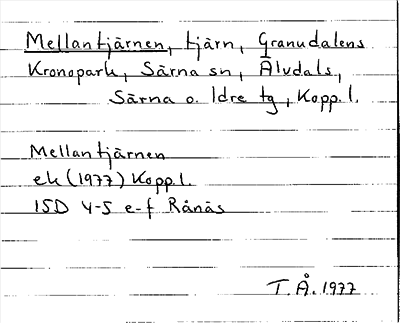 Mellantjärnen, tjärn, Granudalens
Kronopark, Särna sn, Älvdals,
Särna o. Idre tg, Kopp.l.
Mellantjärnen
ek (1977) Kopp.l.
15D 4-5 e-f Rånäs
T.Å. 1977